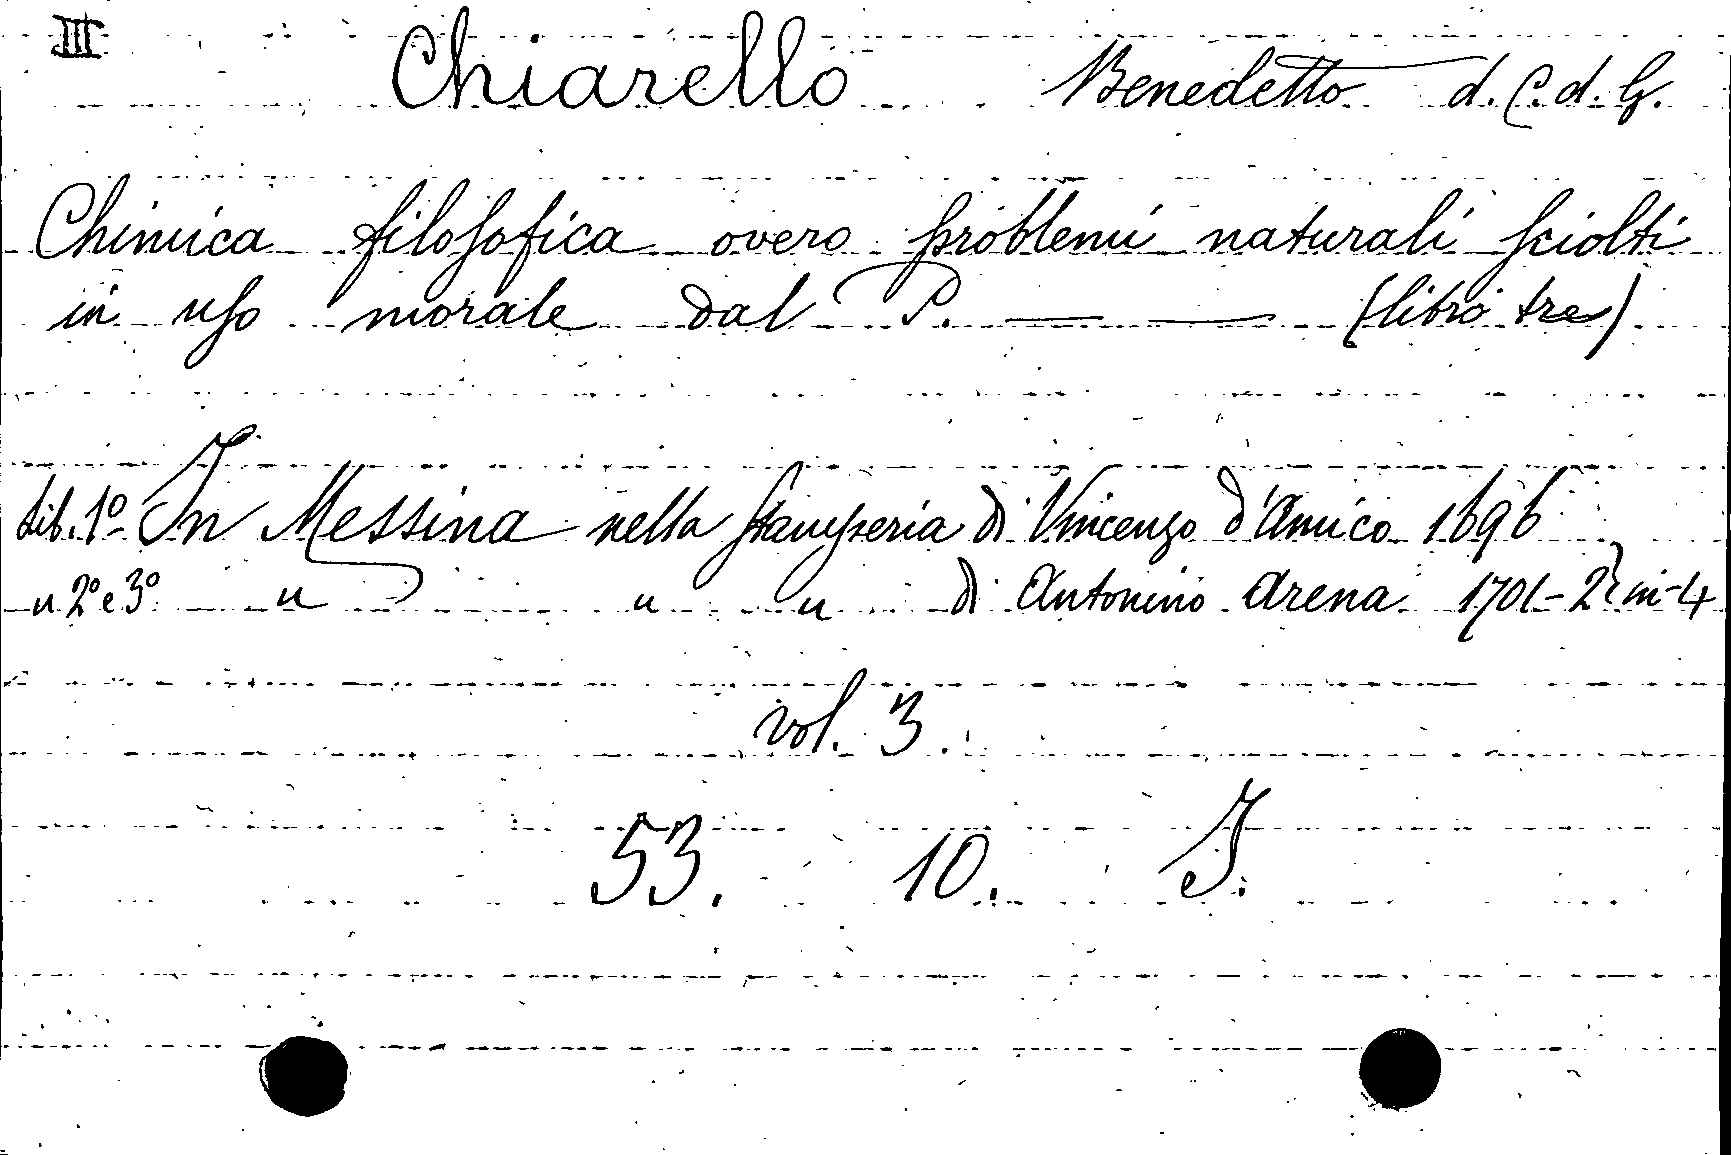 III Chiarello Benedetto d. C. d. G.
Chimica filosofica overo problemi naturali sciolti
in uso morale dal P. — — (libro tre)
Lib. 1º In Messina nella stamperia di Vincenzo d'Amico 1696
" 2º e 3º " " " di Antonino Arena 1701-2} in-4
vol. 3.
53. 10. I.